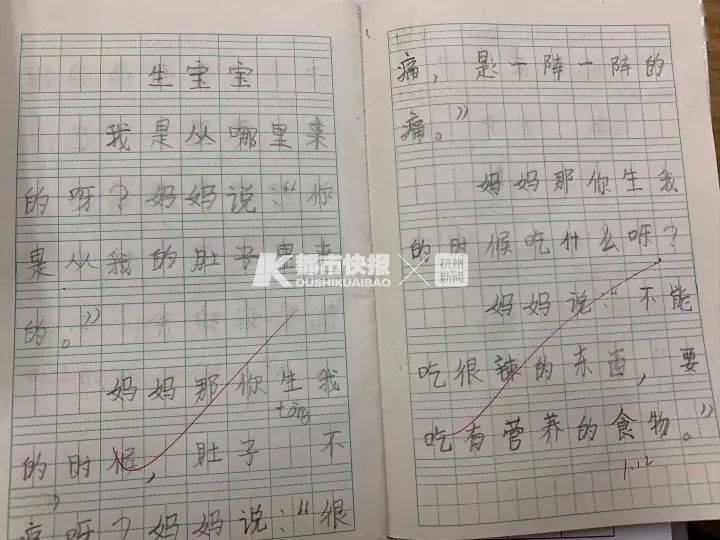 生宝宝
我是从哪里来
的呀？妈妈说：“你
是从我的肚子里来
的。”
妈妈那你生我
tòng
的时候，肚子 不
痛呀？妈妈说：“很
痛，是一阵一阵的
痛。”
妈妈那你生我
的时候吃什么呀？
妈妈说：“不能
吃很辣的东西，要
吃有营养的食物。”
1.12
K都市快报
DUSHIKUAIBAO
杭州
新闻